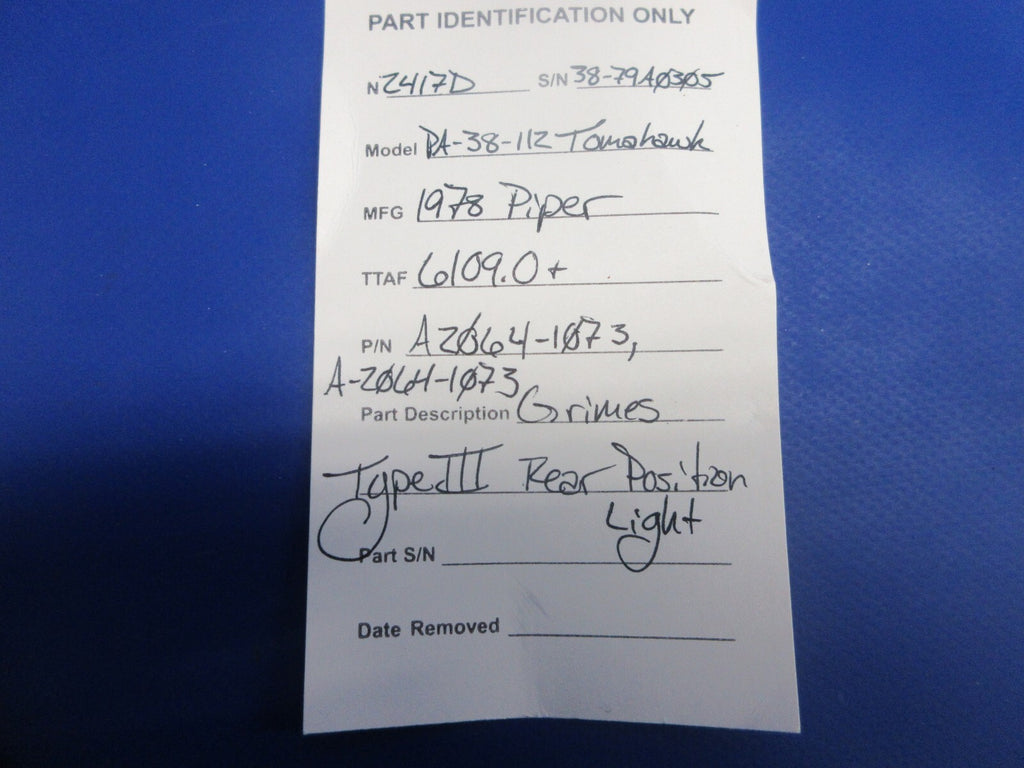 PART IDENTIFICATION ONLY
N 2417D S/N 38-79A0305
Model PA-38-112 Tomahawk
MFG 1978 Piper
TTAF 6109.0+
P/N A2064-1073,
A-2064-1073
Part Description Grimes
Type III Rear Position
Light
Part S/N
Date Removed